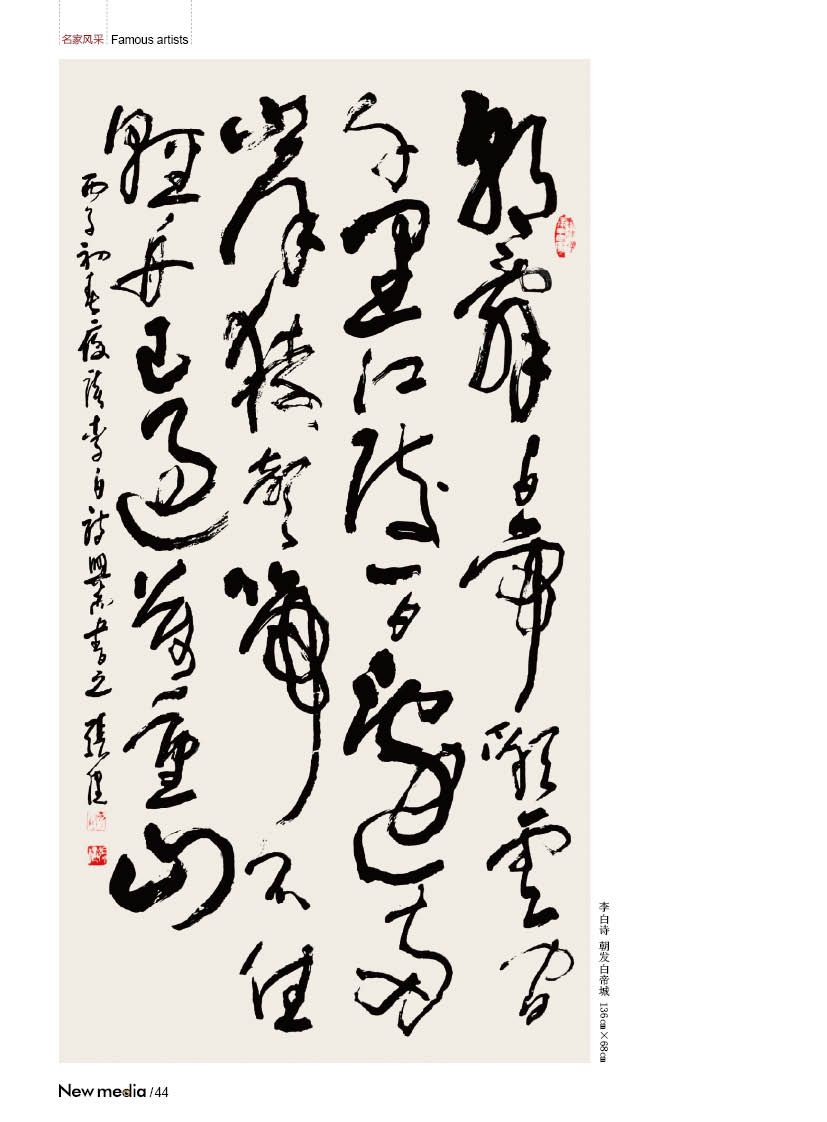 名家风采 Famous artists
朝辭白帝彩雲間
千里江陵一日還兩
岸猿聲啼不住
輕舟已過萬重山
丙子初春夜讀李白詩興來書之 張
李白诗 朝发白帝城 136cm×68cm
New media /44